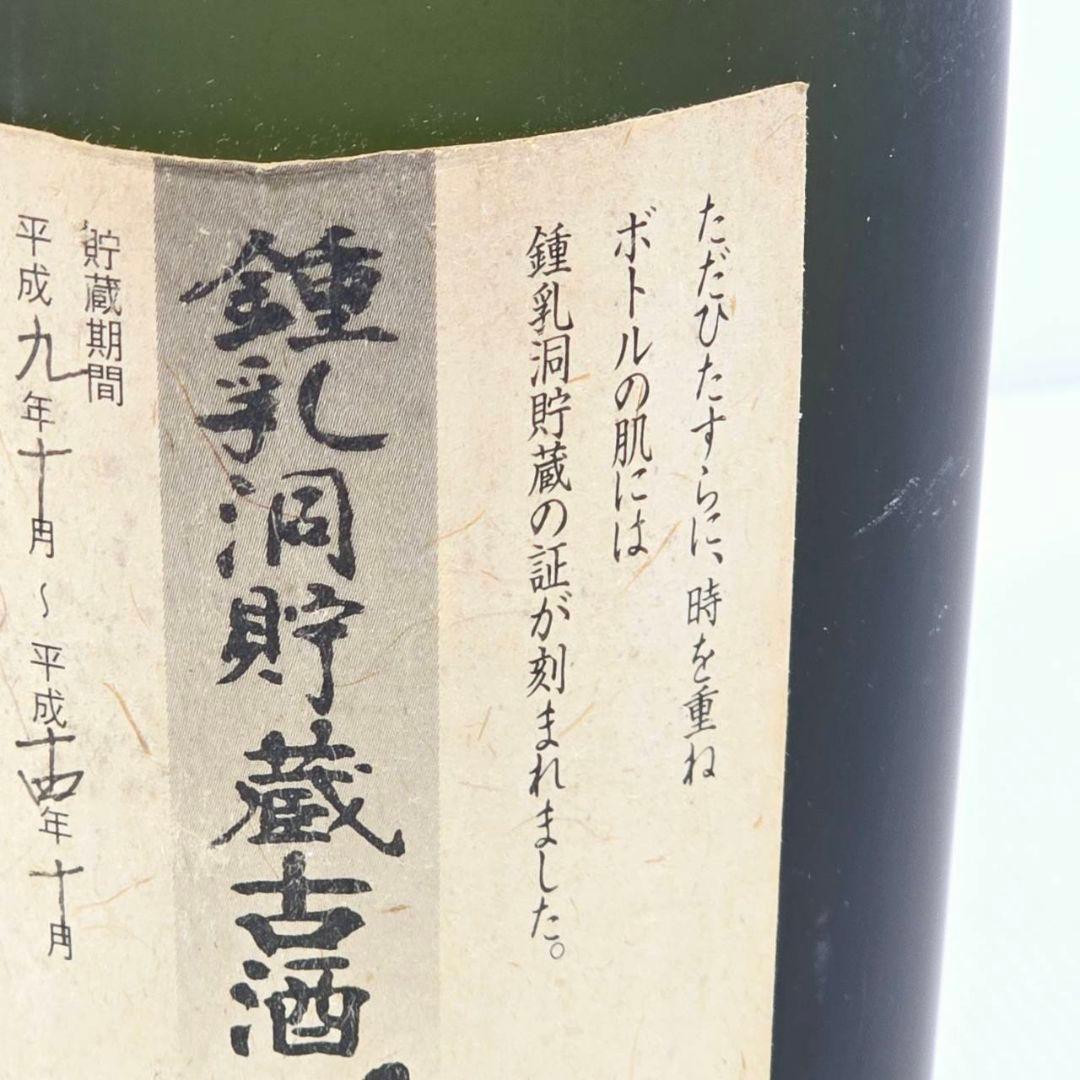 ただひたすらに、時を重ね
ボトルの肌には
鍾乳洞貯蔵の証が刻まれました。
鍾乳洞貯蔵古酒
貯蔵期間
平成九年十月〜平成十四年十月